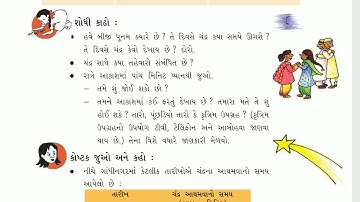 શોધી કાઢો :
• હવે બીજી પૂનમ ક્યારે છે ? તે દિવસે ચંદ્ર કયા સમયે ઊગશે ?
તે દિવસે ચંદ્ર કેવો દેખાય છે ? દોરો.
• ચંદ્ર સાથે કયા તહેવારો સંબંધિત છે ?
• રાત્રે આકાશમાં પાંચ મિનિટ ધ્યાનથી જુઓ.
– તમે શું જોઈ શકો છો ?
– તમને આકાશમાં કંઈ ફરતું દેખાય છે ? તમારા મતે તે શું
હોઈ શકે ? તારો, પૂંછડિયો તારો કે કૃત્રિમ ઉપગ્રહ ? (કૃત્રિમ
ઉપગ્રહનો ઉપયોગ ટીવી, ટેલિફોન અને આબોહવા જાણવા
થાય છે.) તેના વિશે વધારે જાણકારી મેળવો.
કોષ્ટક જુઓ અને કહો :
• નીચે ગાંધીનગરમાં કેટલીક તારીખોએ ચંદ્રના આથમવાનો સમય
આપેલો છે :
તારીખ ચંદ્ર આથમવાનો સમય